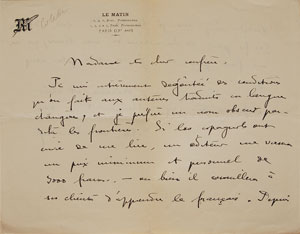 M
LE MATIN
PARIS
Madame et cher confrère,
Je suis extrêmement dégoûtée des conditions
qu'on fait aux auteurs traduits en langue
étrangère, et je préfère un nom obscur par
delà les frontières. Si les espagnols ont
envie de me lire, un éditeur me versera
un prix minimum et personnel de
3000 francs, — ou bien il conseillera à
ses clients d'apprendre le français. Depuis